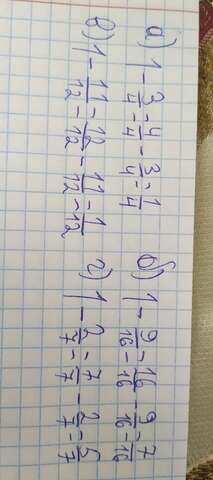 а) 1 - 3/4 = 4/4 - 3/4 = 1/4
б) 1 - 9/16 = 16/16 - 9/16 = 7/16
в) 1 - 11/12 = 12/12 - 11/12 = 1/12
г) 1 - 2/7 = 7/7 - 2/7 = 5/7